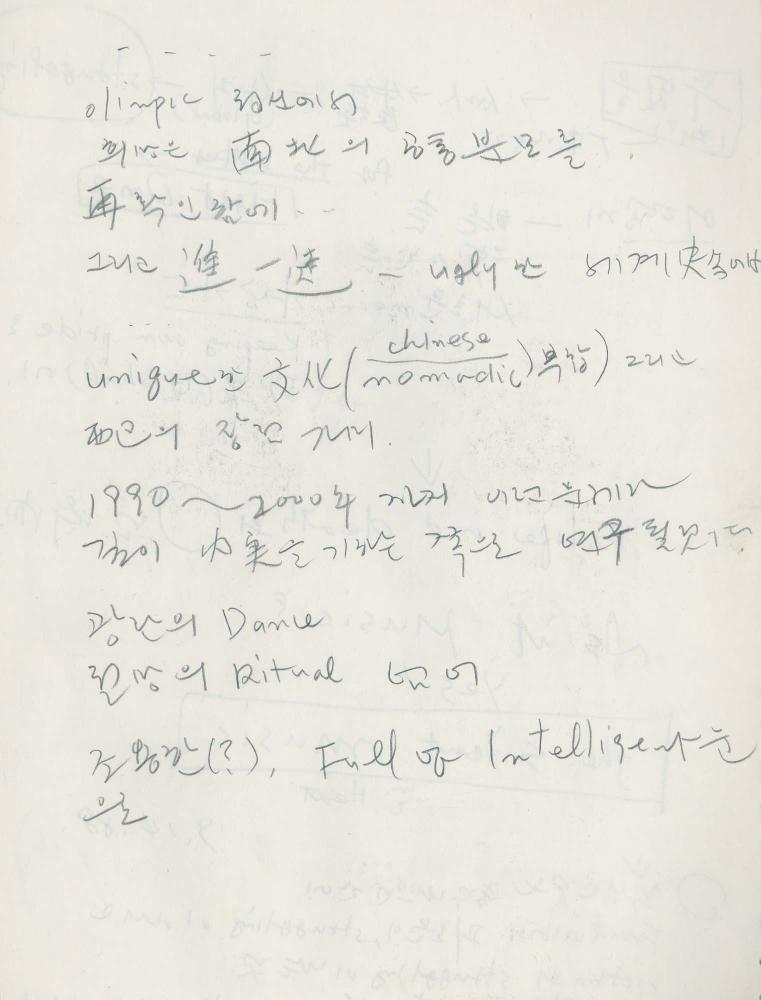 - - - -
olimpic 행사에서
희망은 南北의 공통분모를
再확인함에 ..
그리고 進一送 - ugly 한 세계史속에서
...
unique한 文化(chinese/nomadic)복합) 그리고
西口의 장건 거리.
1990~2000年 까지 이런 문제가
깊이 内実을 기하는 쪽으로 연구될 것이다.
광란의 Dance
절망의 Ritual 넘어
조용한(?), Full of Intelligence 눈
으로